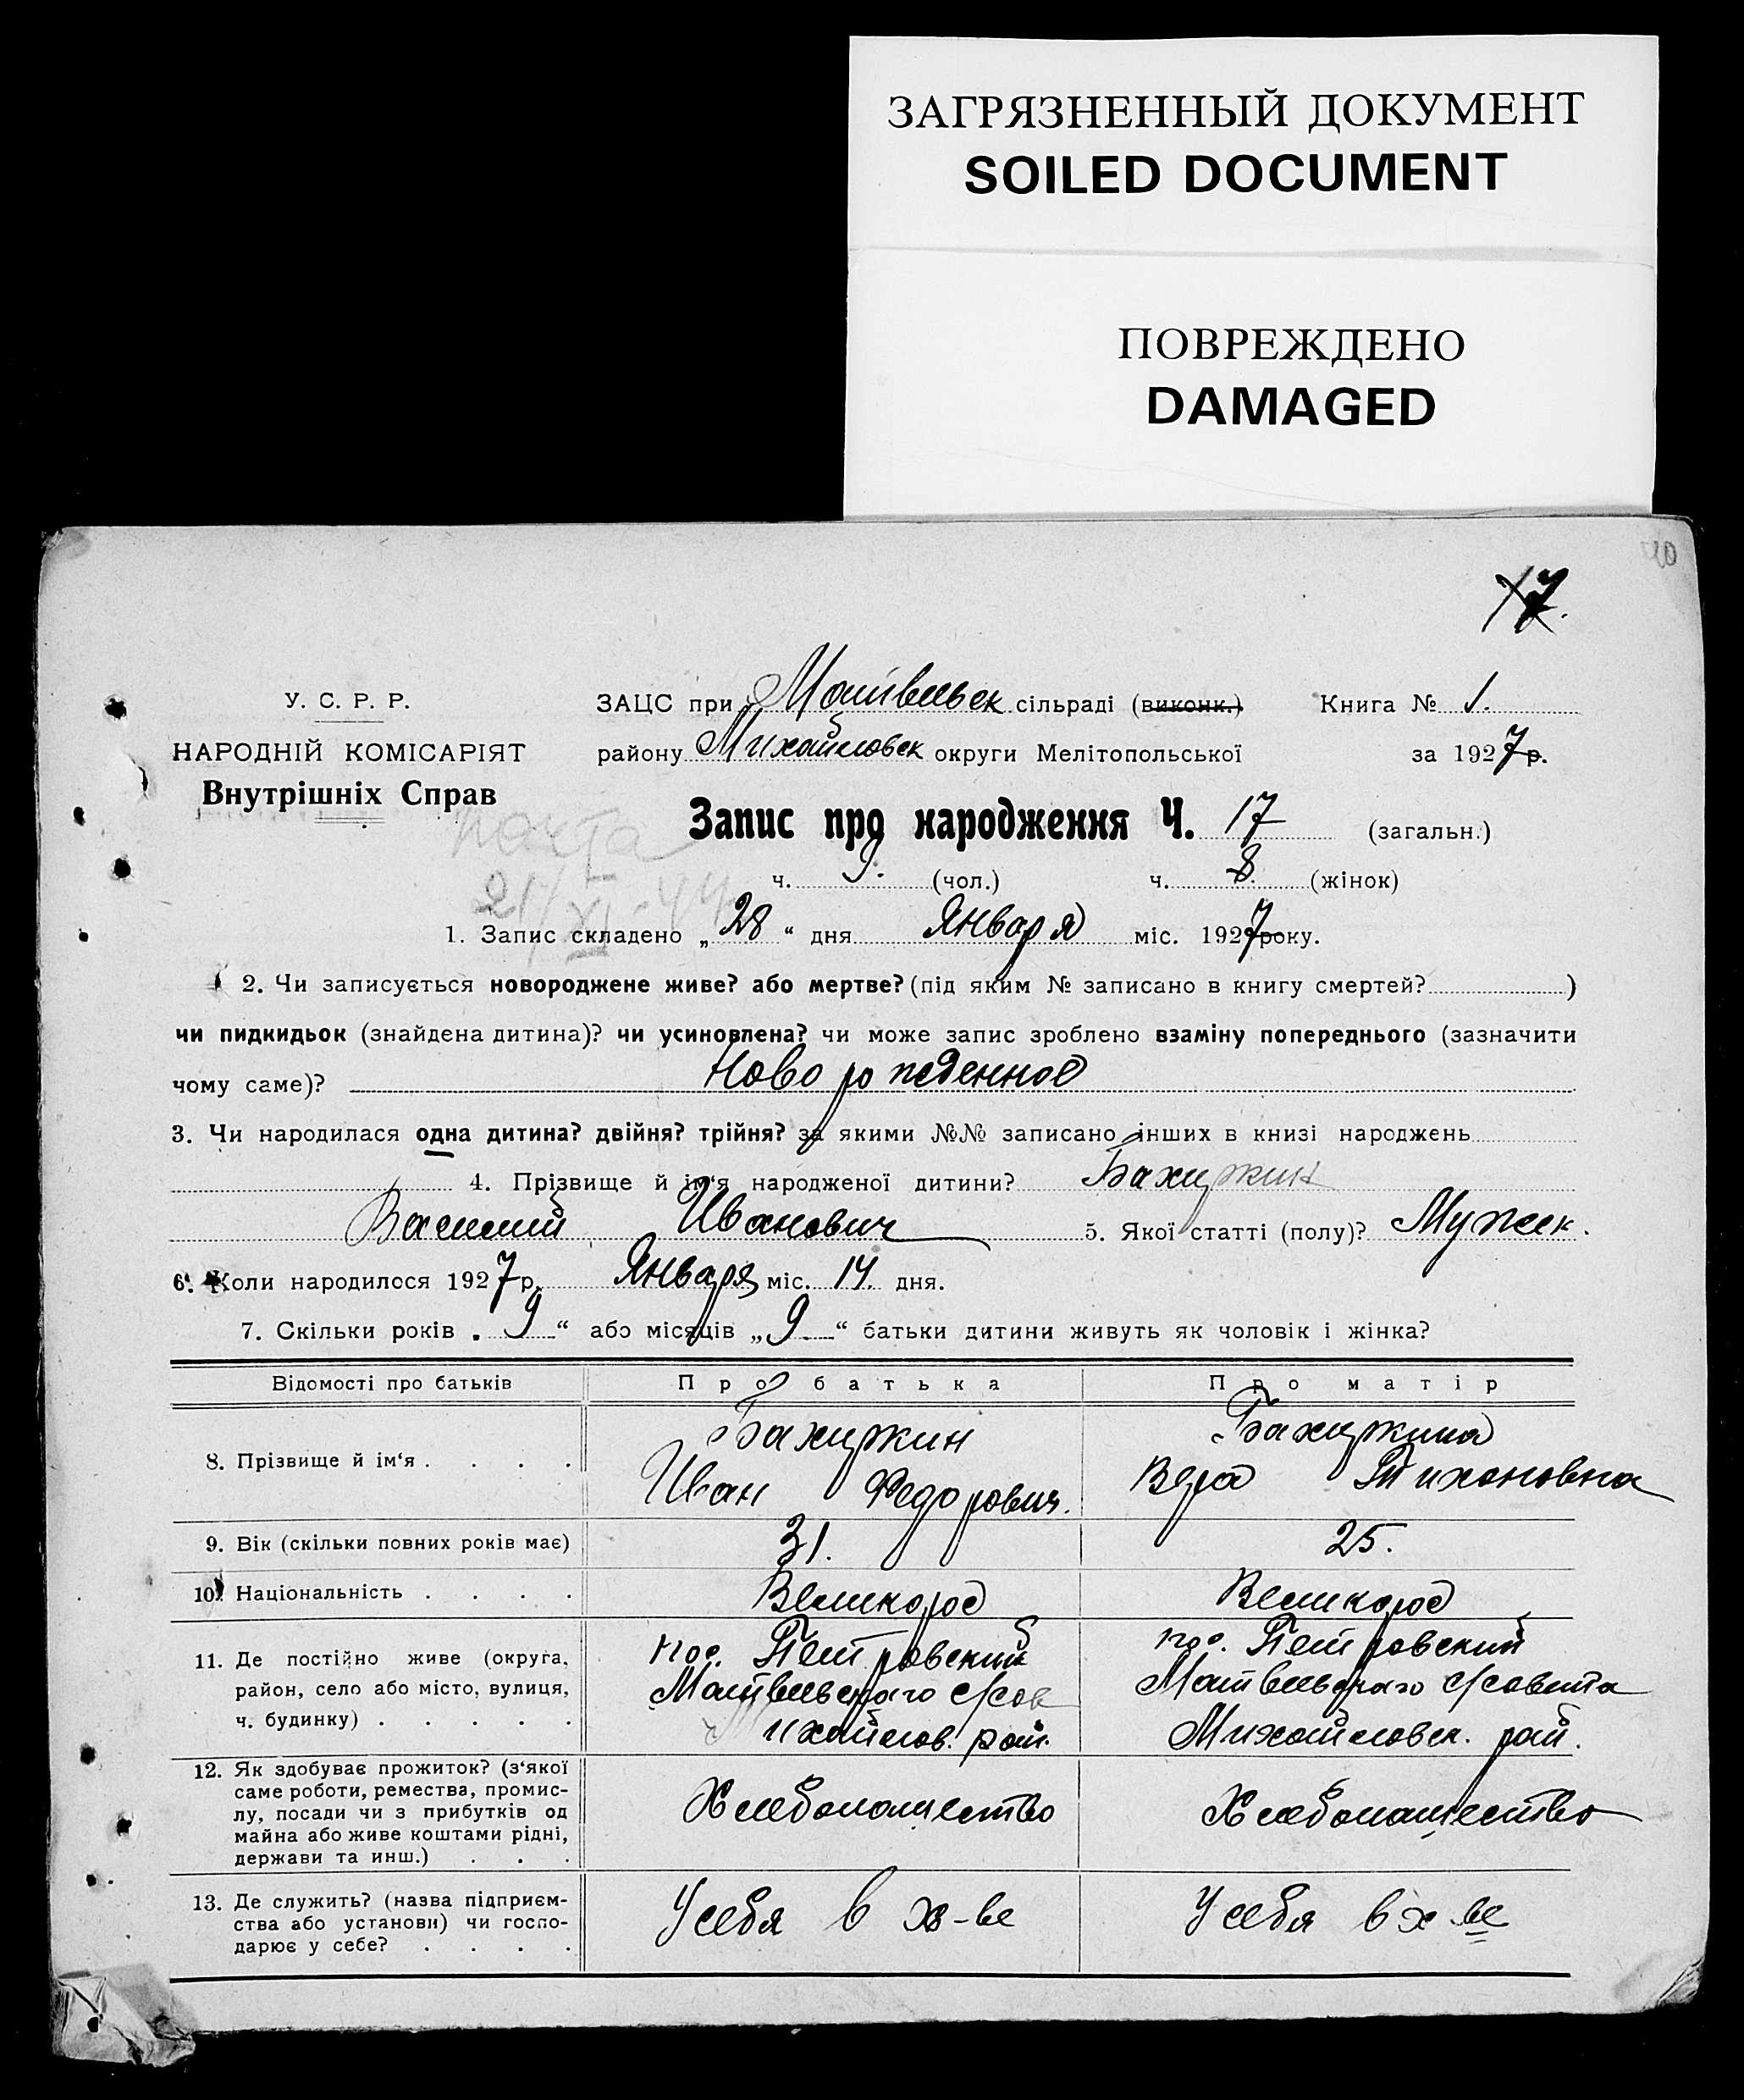 ЗАГРЯЗНЕННЫЙ ДОКУМЕНТ
SOILED DOCUMENT
ПОВРЕЖДЕНО
DAMAGED
40
17.
У. С. Р. Р.
НАРОДНІЙ КОМІСАРІЯТ
Внутрішніх Справ
ЗАЦС при Матвеевск сільраді (виконк.) Книга № 1.
району Михайловск округи Мелітопольської за 1927 р.
Запис про народження Ч. 17 (загальн.)
ч. 9. (чол.) ч. 8. (жінок)
почта
21/XI-44
1. Запис складено „28“ дня Января міс. 1927 року.
2. Чи записується новороджене живе? або мертве? (під яким № записано в книгу смертей? )
чи пидкидьок (знайдена дитина)? чи усиновлена? чи може запис зроблено взаміну попереднього (зазначити
чому саме)? Новорожденное
3. Чи народилася одна дитина? двійня? трійня? за якими №№ записано інших в книзі народжень
4. Прізвище й ім‘я народженої дитини? Бахиркин
Василий Иванович 5. Якої статті (полу)? Мужск.
6. Коли народилося 1927 р. Января міс. 14. дня.
7. Скільки років „9“ або місяців „9.“ батьки дитини живуть як чоловік і жінка?
Відомості про батьків Про батька Про матір
8. Прізвище й ім‘я . . . . Бахиркин Иван Федорович. Бахиркина Вера Тихоновна
9. Вік (скільки повних років має) 31. 25.
10. Національність . . . . Великорос Великорос
11. Де постійно живе (округа, пос. Петровский пос. Петровский
район, село або місто, вулиця, Матвеевскаго с/сов Матвеевскаго с/совета
ч. будинку) . . . . . ихайлов. рай. Михайловск. рай.
12. Як здобуває прожиток? (з‘якої
саме роботи, ремества, промис-
лу, посади чи з прибутків од Хлебопашество Хлебопашество
майна або живе коштами рідні,
держави та инш.) . . .
13. Де служить? (назва підприєм-
ства або установи) чи госпо- У себя в хо-ве У себя в х-ве
дарює у себе? . . . .